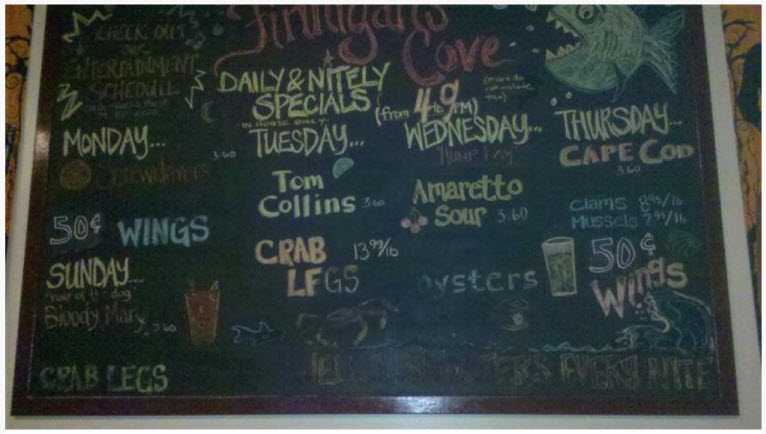 Finnigan's
Cove
CHECK OUT
our
ENTERTAINMENT
SCHEDULE
DAILY & NITELY
SPECIALS!
(from 4 to 9 PM)
IN HOUSE ONLY
MONDAY...
3.60
Screwdrivers
50¢ WINGS
TUESDAY...
Tom
Collins 3.60
CRAB 13.99/lb
LEGS
WEDNESDAY...
Hump Day
Amaretto
Sour 3.60
oysters
THURSDAY...
CAPE COD
3.60
Clams 8.95/lb
Mussels 7.95/lb
50¢
Wings
SUNDAY...
hair of the dog
Bloody Mary 3.60
CRAB LEGS
EVERY NITE